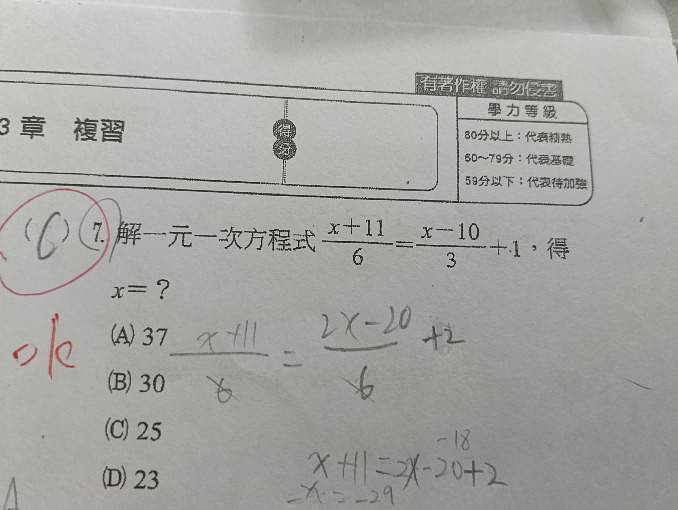 有著作權 請勿侵害
3 章 複習
得分
學力等級
80分以上：代表精熟
60～79分：代表基礎
59分以下：代表待加強
(C) 7. 解一元一次方程式 (x+11)/6 = (x-10)/3 + 1，得
x=？
ok
(A) 37
(x+11)/6 = (2x-20)/6 +2
(B) 30
(C) 25
(D) 23
-18
x+11=2x-20+2
-x=-29
A